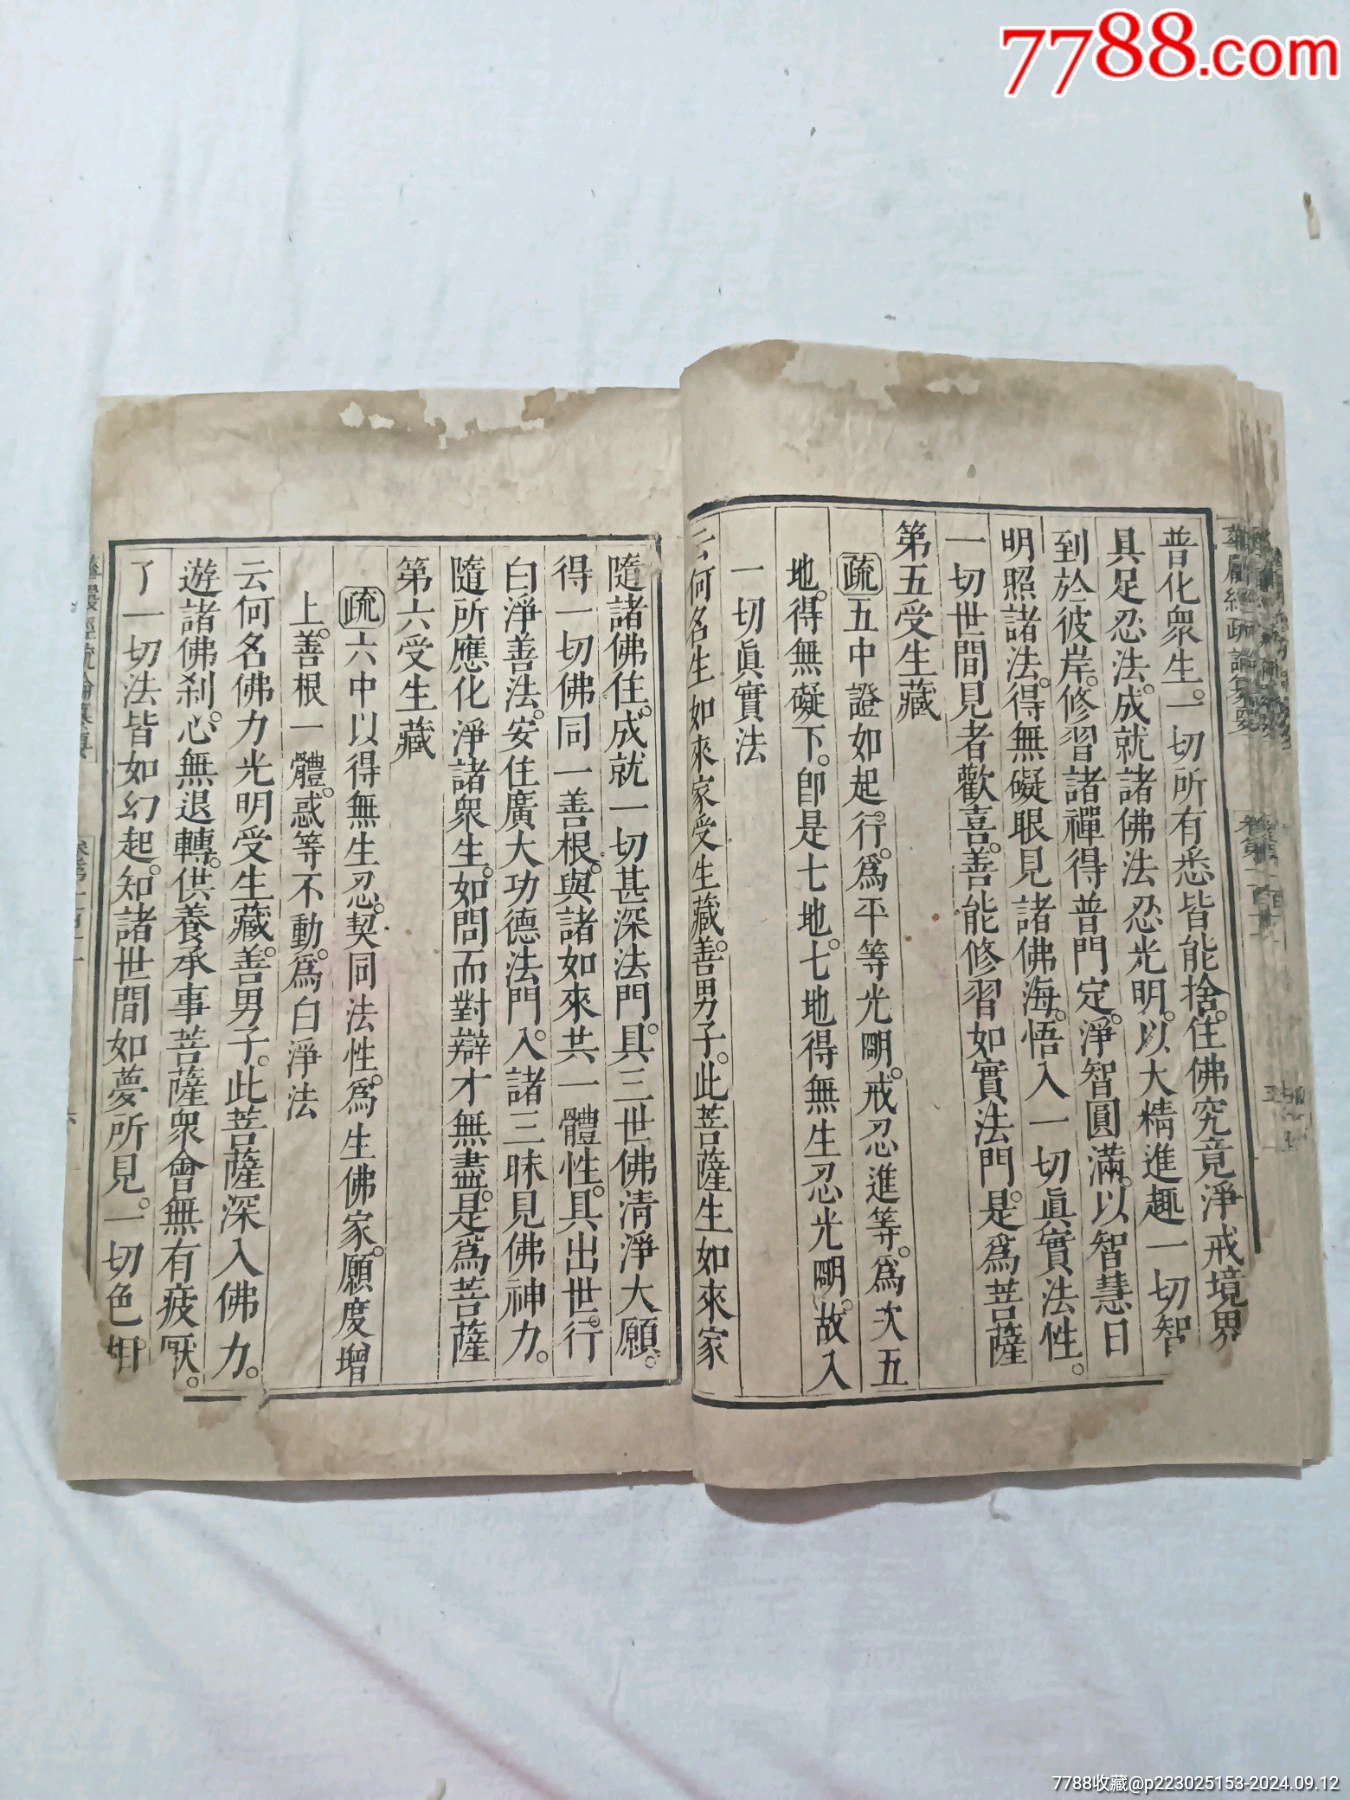 7788.com
華嚴經疏論纂要
普化衆生。一切所有悉皆能捨。住佛究竟淨戒境界
具足忍法。成就諸佛法忍光明。以大精進趣一切智
到於彼岸。修習諸禪得普門定。淨智圓滿。以智慧日
明照諸法。得無礙眼見諸佛海。悟入一切眞實法性。
一切世間見者歡喜。善能修習如實法門。是爲菩薩
第五受生藏
疏五中證如起行。爲平等光明。戒忍進等。爲次五
地。得無礙下。卽是七七地。七地得無生忍光明。故入
一切眞實法
云何名生如來家受生藏。善男子。此菩薩生如來家
隨諸佛住。成就一切甚深法門。具三世佛清淨大願。
得一切佛同一善根。與諸如來共一體性。具出世行
白淨善法。安住廣大功德法門。入諸三昧見佛神力。
隨所應化淨諸衆生。如問而對辯才無盡。是爲菩薩
第六受生藏
疏六中以得無生忍。契同法性。爲生佛家。願度增
上。善根一體。惑等不動。爲白淨法
云何名佛力光明受生藏。善男子。此菩薩深入佛力。
遊諸佛刹。心無退轉。供養承事菩薩衆會無有疲厭。
了一切法皆如幻起。知諸世間如夢所見。一切色相
華嚴經疏論纂要
7788收藏@p223025153-2024.09.12